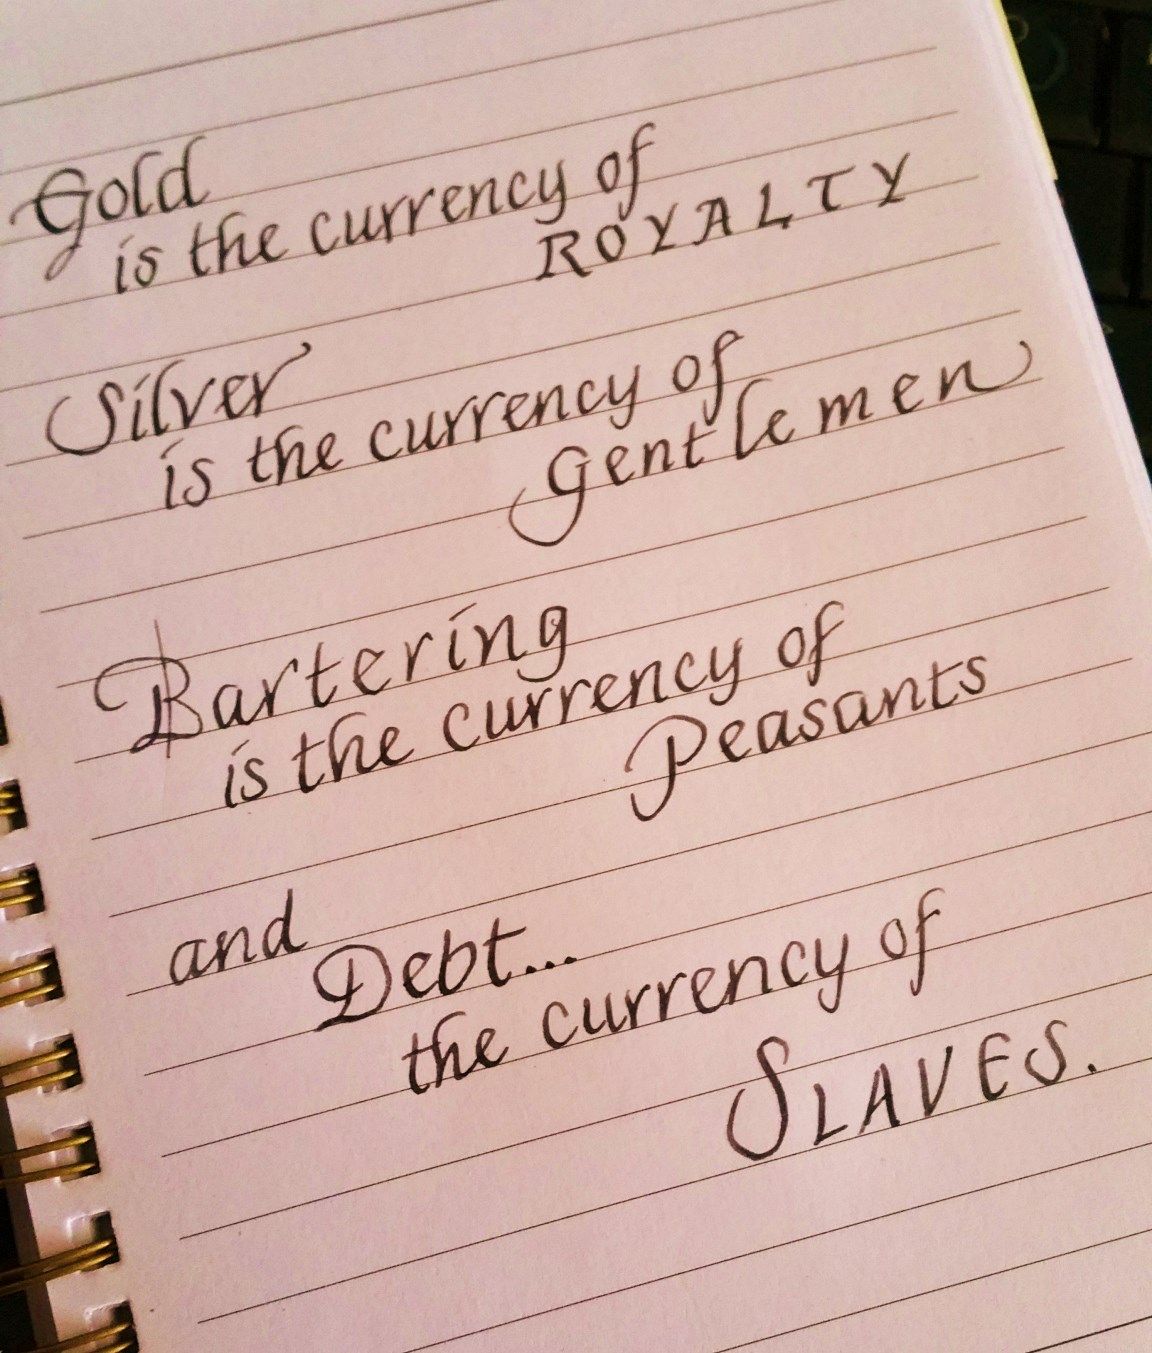 Gold
is the currency of
ROYALTY
Silver
is the currency of
Gentlemen
Bartering
is the currency of
Peasants
and
Debt...
the currency of
SLAVES.